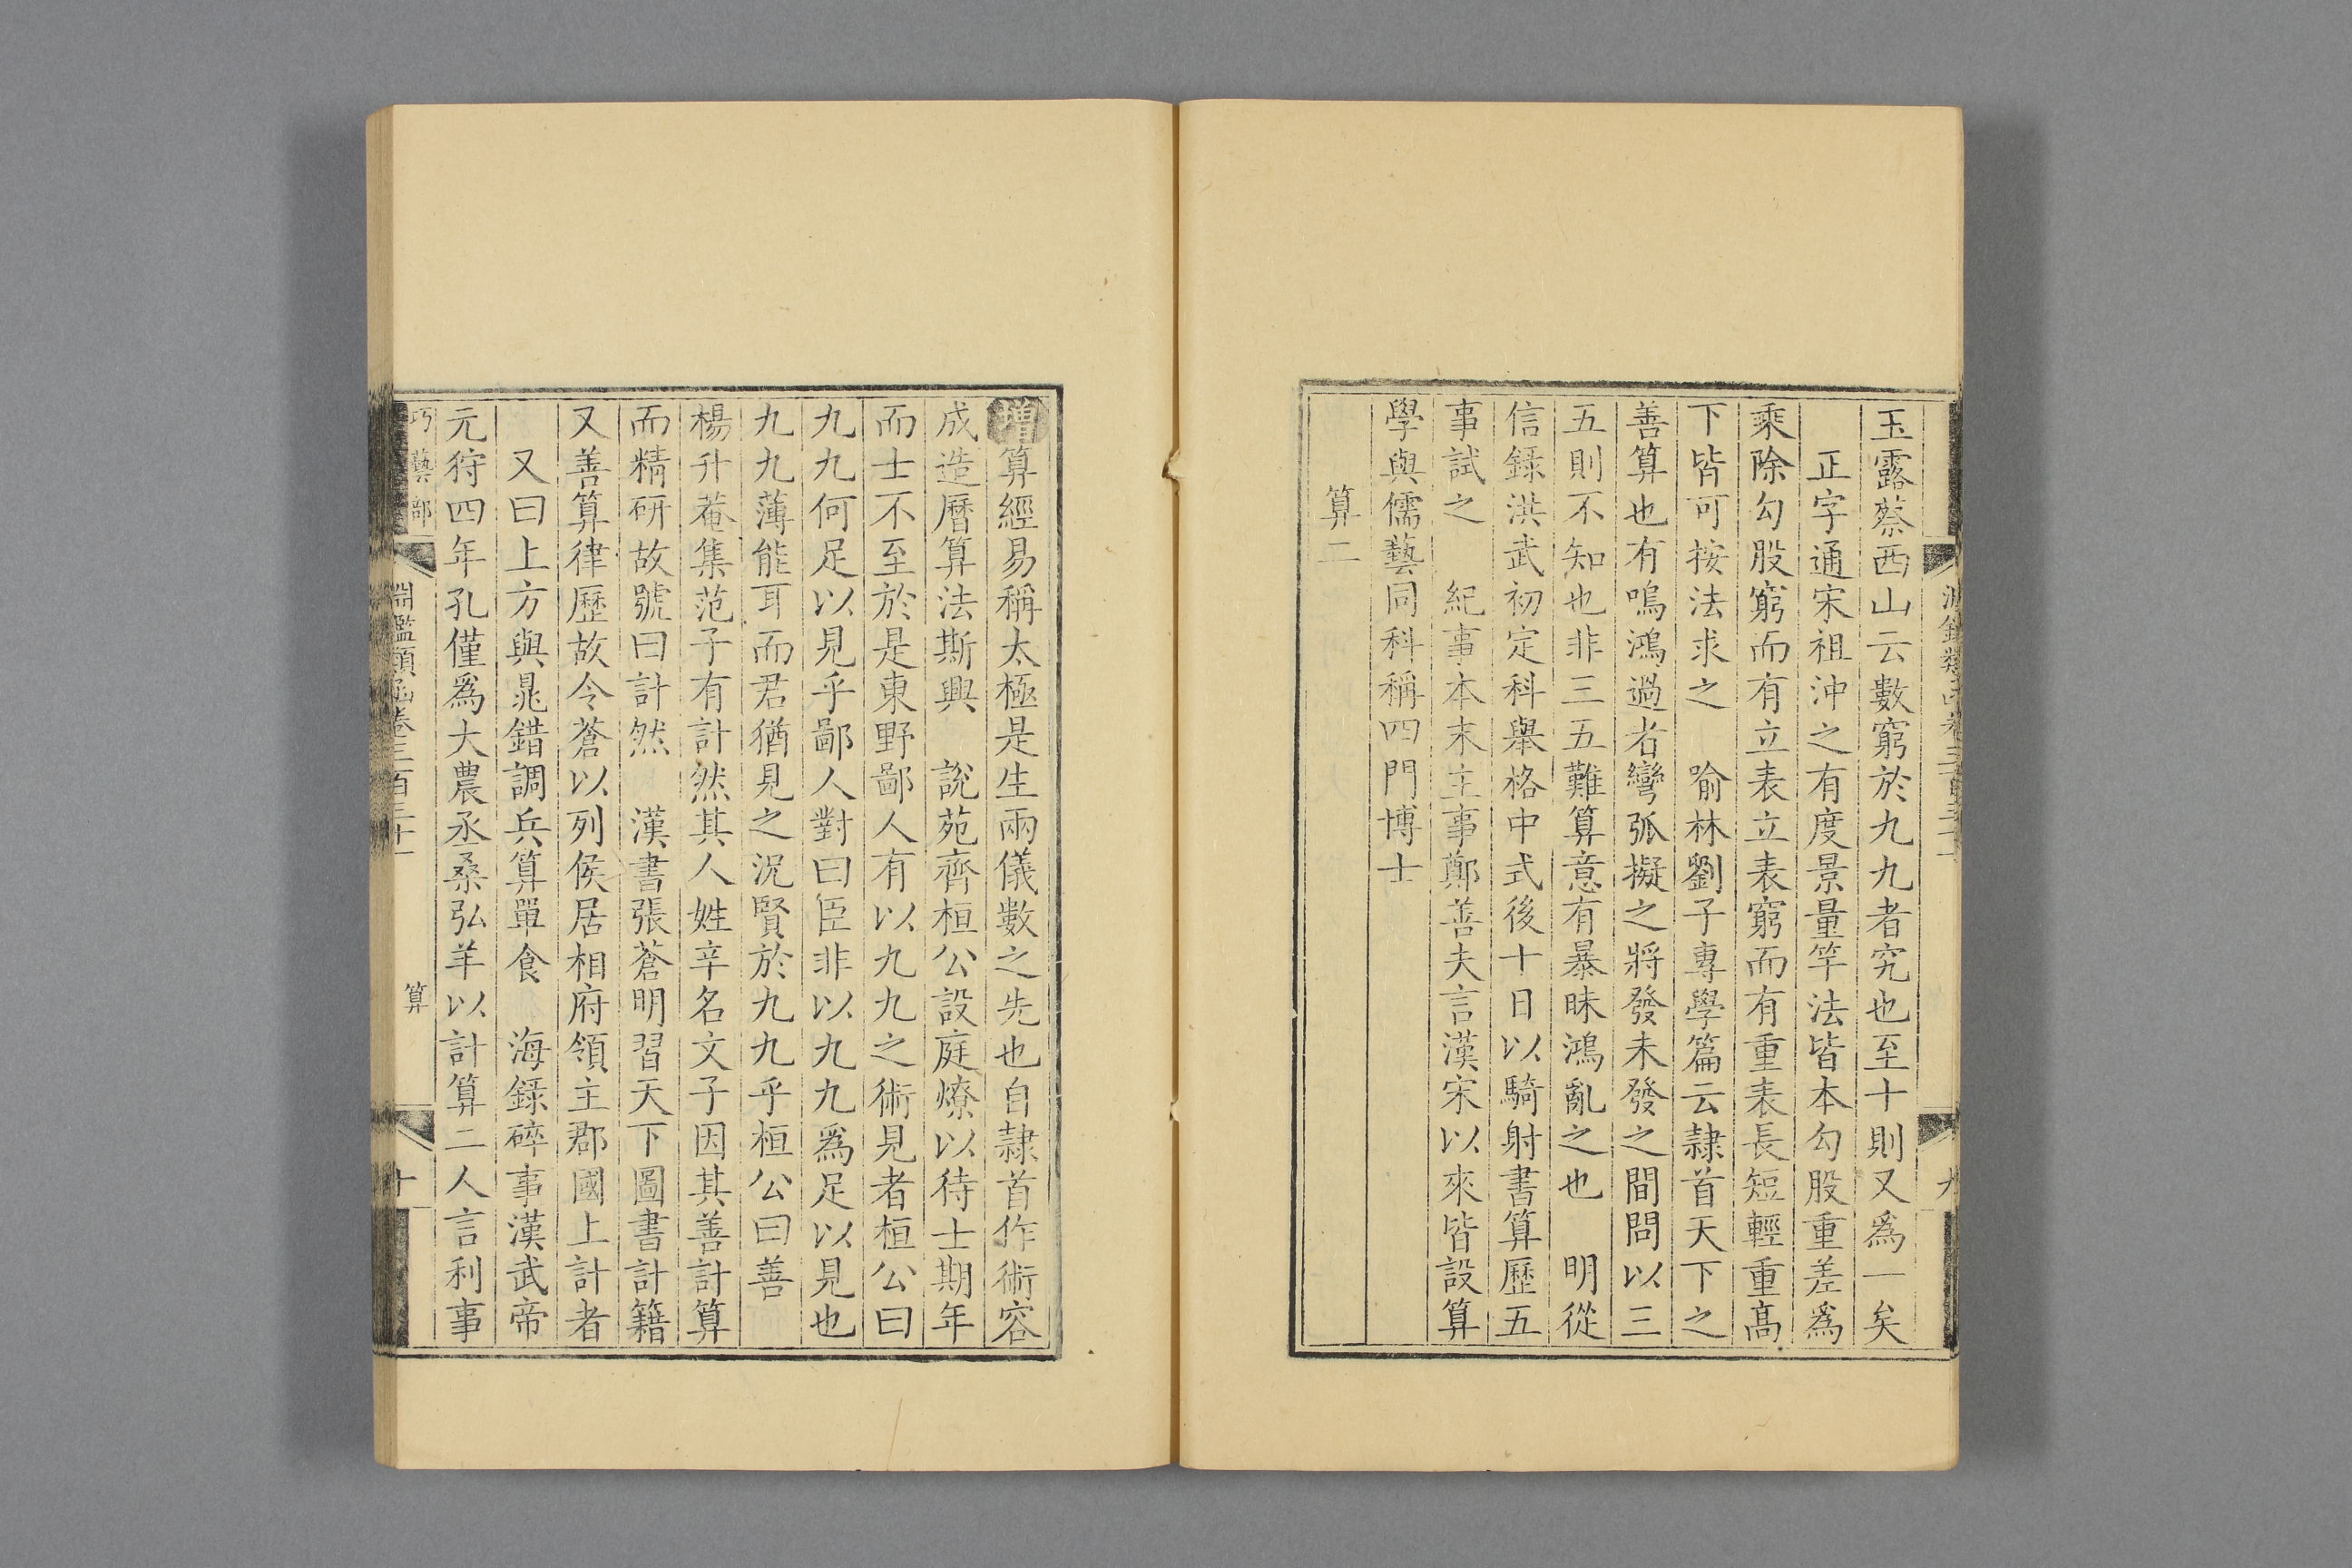 玉露蔡西山云數窮於九九者究也至十則又爲一矣
正字通宋祖沖之有度景量竿法皆本勾股重差爲
乘除勾股窮而有立表立表窮而有重表長短輕重高
下皆可按法求之 喻林劉子專學篇云隷首天下之
善算也有鳴鴻過者彎弧擬之將發未發之間問以三
五則不知也非三五難算意有暴昧鴻亂之也 明從
信録洪武初定科舉格中式後十日以騎射書算歷五
事試之 紀事本末主事鄭善夫言漢宋以來皆設算
學與儒藝同科稱四門博士
算二
增算經易稱太極是生兩儀數之先也自隷首作術容
成造曆算法斯興 說苑齊桓公設庭燎以待士期年
而士不至於是東野鄙人有以九九之術見者桓公曰
九九何足以見乎鄙人對曰臣非以九九爲足以見也
九九薄能耳而君猶見之況賢於九九乎桓公曰善
楊升菴集范子有計然其人姓辛名文子因其善計算
而精研故號曰計然 漢書張蒼明習天下圖書計籍
又善算律歷故令蒼以列侯居相府領主郡國上計者
又曰上方與鼂錯調兵算單食 海録碎事漢武帝
元狩四年孔僅爲大農丞桑弘羊以計算二人言利事
巧藝部 淵鑑類函卷三百三十一 算 十